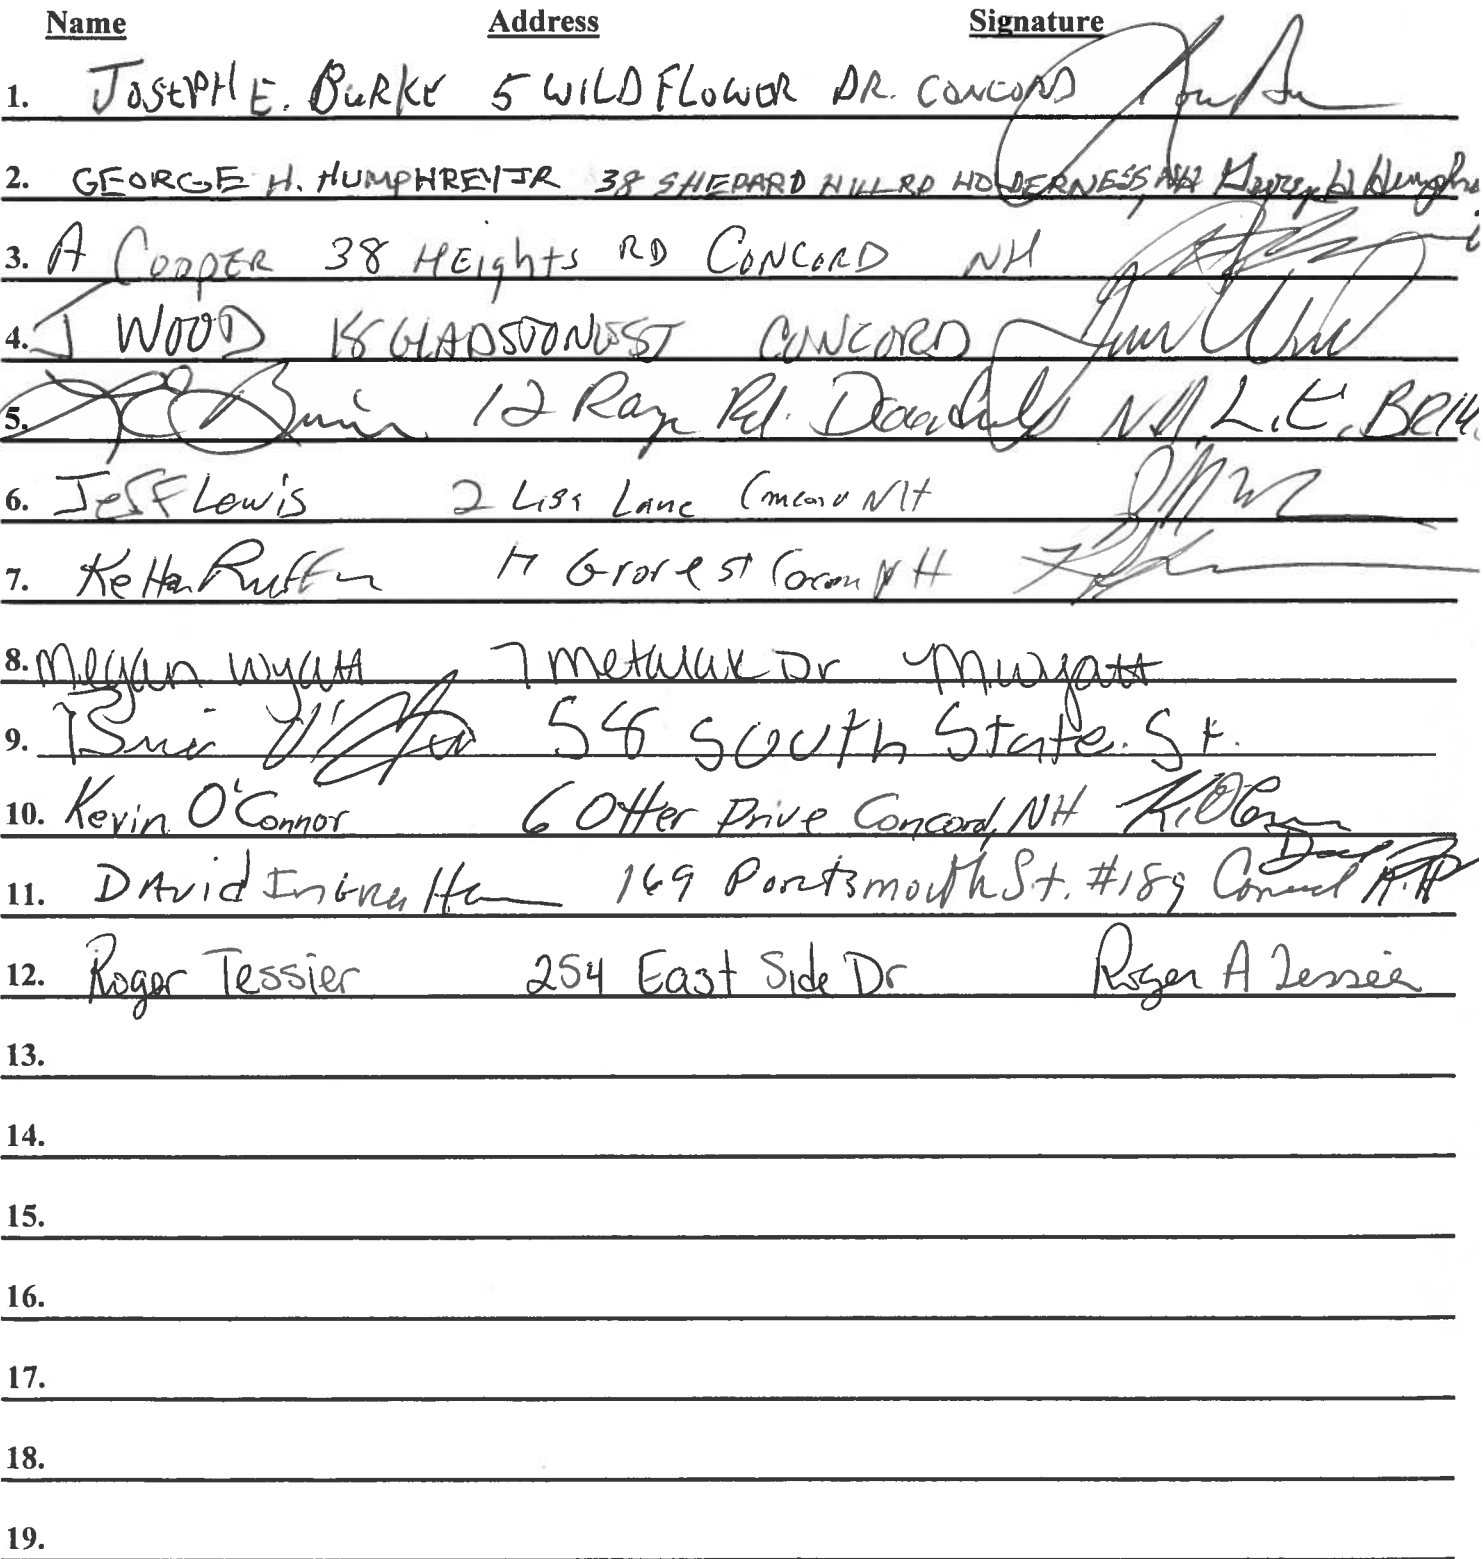 Name Address Signature
1. JOSEPH E. BURKE 5 WILDFLOWER DR. CONCORD
2. GEORGE H. HUMPHREY JR 38 SHEPARD HILL RD HOLDERNESS, NH George H Humphr
3. A COOPER 38 HEights RD CONCORD NH
4. J WOOD 18 GLADSTONE ST CONCORD
5. 12 Ray Rd. NH L.E.
6. Jeff Lewis 2 Lisa Lane Concord NH
7. Grove st NH
8. Megan Wyatt 7 Metalak Dr MWyatt
9. 58 South State. St.
10. Kevin O'Connor 6 Otter Drive Concord, NH K. O'Connor
11. DAvid IngraHam 169 Portsmouth St. #189 Concord
12. Roger Tessier 254 East Side Dr Roger A Tessier
13.
14.
15.
16.
17.
18.
19.